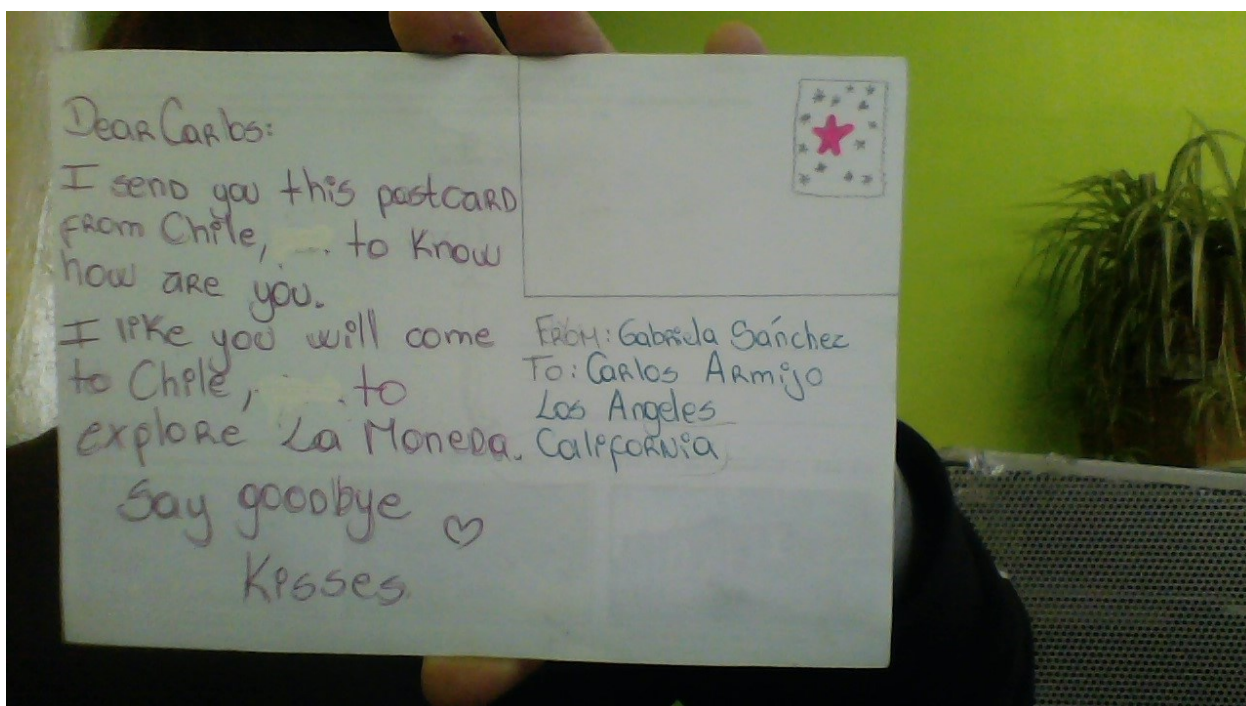 Dear Carlos:
I send you this postcard
from Chile, to know
how are you.
I like you will come
to Chile, to
explore La Moneda.
Say goodbye
Kisses
From: Gabriela Sánchez
To: Carlos Armijo
Los Angeles
California